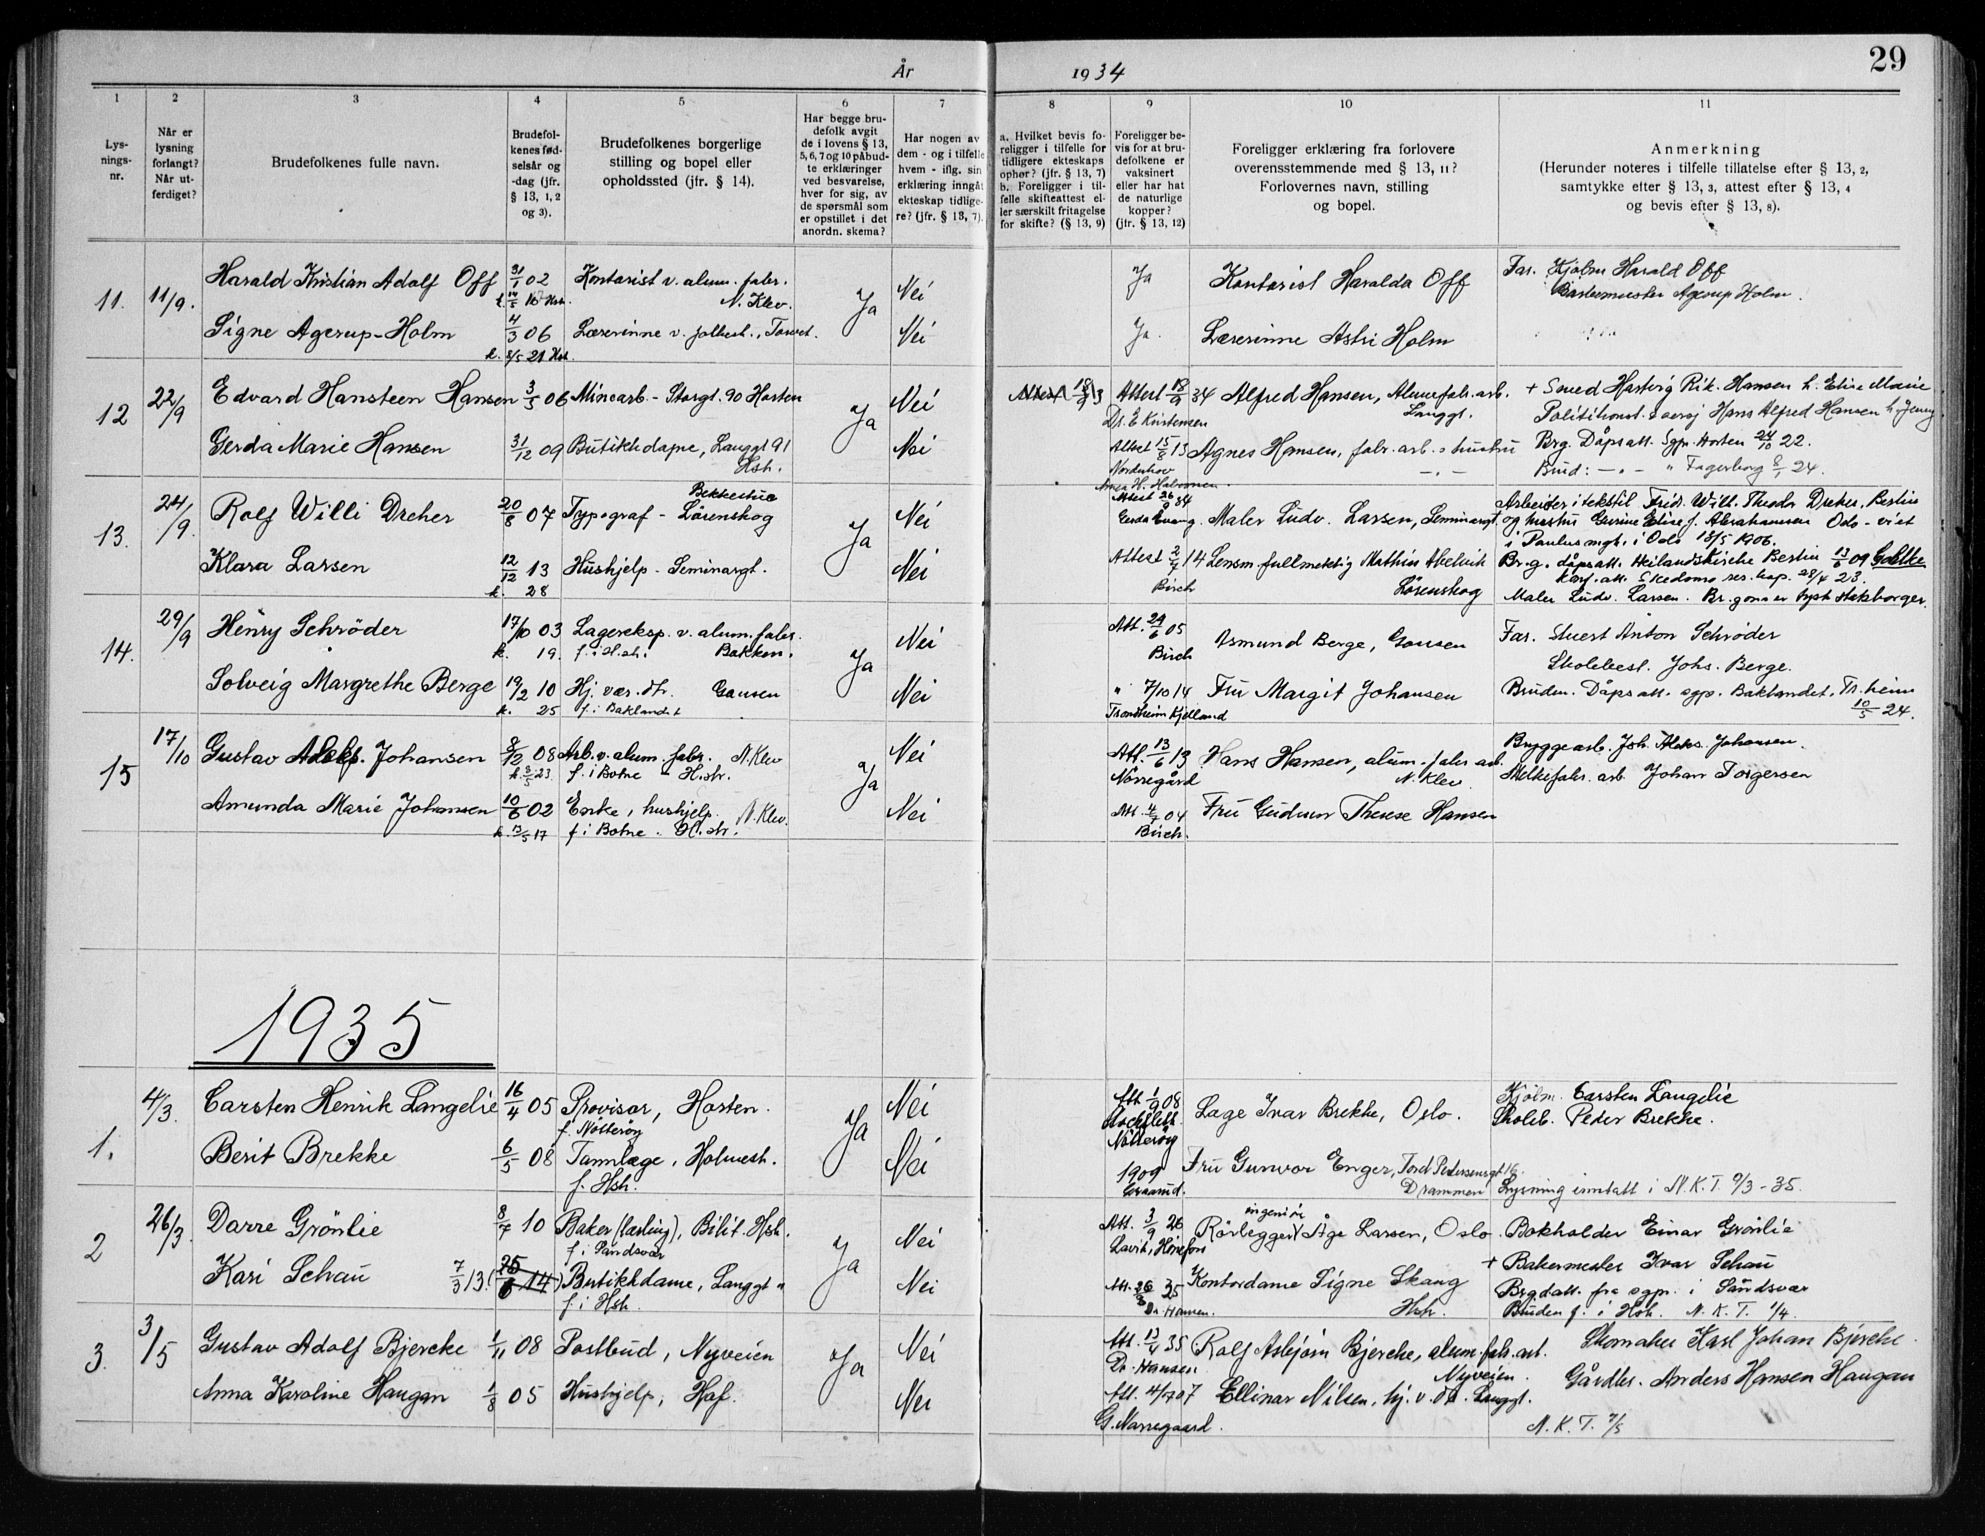 29
År 1934
1 2 3 4 5 6 7 8 9 10 11
Lys-
nings-
nr.
Når er
lysning
forlangt?
Når ut-
ferdiget?
Brudefolkenes fulle navn.
Brudefol-
kenes fød-
selsår og
-dag (jfr.
§ 13, 1, 2
og 3).
Brudefolkenes borgerlige
stilling og bopel eller
opholdssted (jfr. § 14).
Har begge bru-
defolk avgit
de i lovens § 13,
5, 6, 7 og 10 påbud-
te erklæringer
ved besvarelse,
hver for sig, av
de spørsmål som
er opstillet i det
anordn. skema?
Har nogen av
dem - og i tilfelle
hvem - iflg. sin
erklæring inngåt
ekteskap tidlige-
re? (jfr. § 13, 7).
a. Hvilket bevis fo-
religger i tilfelle for
tidligere ekteskaps
ophør? (jfr. § 13, 7)
b. Foreligger i til-
felle skifteattest el-
ler særskilt fritagelse
for skifte? (§ 13, 9)
Foreligger be-
vis for at bru-
defolkene er
vaksinert
eller har hat
de naturlige
kopper?
(jfr. § 13, 12)
Foreligger erklæring fra forlovere
overensstemmende med § 13, 11?
Forlovernes navn, stilling
og bopel.
Anmerkning
(Herunder noteres i tilfelle tillatelse efter § 13, 2,
samtykke efter § 13, 3, attest efter § 13, 4
og bevis efter § 13, 8).
11. 11/9. Harald Kristian Adolf Off 31/1 02 Kontorist v. alum. fabr. Nei Ja Kontorist Haralda Off Far. Kjølm Harald Off
N. Klev. Ja Agerup Holm.
Signe Agerup-Holm 4/3 06 Lærerinne v. folkesk., Torvet. Nei Ja. Lærerinne Astri Holm
12 22/9 Edvard Hansteen Hansen 3/5 06 Minearb. - Storgt. 90 Horten Nei Attest 18/9 34 Alfred Hansen, Alumfabr. arb. + Smed Hartvig Rik. Hansen h. Elise Marie
Ja Dr. E Kristensen Langgt. Hans Alfred Hansen h. Jenny
Gerda Marie Hansen 31/12 09 Butikkdame, Langgt 91 Nei Attest 15/8 13 Agnes Hansen, fabr. arb. s hustru Brg. Dåpsatt. Sgp. Horten 24/10 22.
Hsh. Brud: - " - " Fagerborg 24.
13. 24/9. Rolf Willi Dreher 20/8 07 Typograf - Lörenskog Nei Attest 26/9 34 Maler Ludv. Larsen, Seminargt. Arbeider i tekstil Frid. Will. Theodor Dreher, Berlin
Bekkestua og hustru Gurine Elise f. Abrahamsen Oslo - viet
Ja i Paulus mgt. i Oslo 13/5 1906.
Klara Larsen 12/12 13 Hushjelp - Seminargt. Nei Attest 2/7 14 Lensm. fullmektig Br.g. dåpsatt. Heilandskirche Berlin 13/6 09
k. 28 Birch Lörenskog konf. att. Skedsmo res. kap. 28/4 23.
Maler Ludv. Larsen. Br.gom er tysk statsborger.
14. 29/9 Henry Schröder 17/10 03 Lagereksp. v. alum. fabr. Nei Att. 29/6 05 Asmund Berge, Gausen Far. Stuert Anton Schröder
k. 19. f. i Hsh. Bakken. Ja Birch Skolebest. Johs. Berge.
Solveig Margrethe Berge 19/2 10 Hj. vær. dtr. Gausen Nei " 7/10 14 Fru Margit Johansen Bruden. Dåpsatt. sgp. Baklandet, Tr.heim
k. 25 f. i Baklandet Trondheim Kjelland 10/5 24.
15 17/10 Gustav Adolf Johansen 8/12 08 Arb. v. alum. fabr. N. Klev Nei Att. 13/6 13 Hans Hansen, alum. fabr. arb. Bryggearb. Joh. Aleks. Johansen.
k. 23 f. i Botne - H.str. Ja Nörregård N. Klev. Melkefabr. arb. Johan Torgersen
Amunda Marie Johansen 10/6 02 Enke, hushjelp. N. Klev. Nei Att. 4/7 04 Fru Gudrun Therese Hansen
k. 17 f. i Botne. H.str. Birch.
1935
1. 4/3. Carsten Henrik Langelie 16/4 05 Provisor, Horten. Nei Att. 1/9 08 Lage Ivar Brekke, Oslo. Kjölm. Carsten Langelie
f. Nötteröy Ja Nötteröy Skoleb. Peder Brekke.
Berit Brekke 6/5 08 Tannlæge, Holmestr. Nei 1909 Fru Gunvor Enger, Tord Pedersensgt 16
f. Hsh. Drammen Lysning inntatt i N.K.T. 9/3-35.
2 26/3 Darre Grönlie 8/7 10 Baker (lærling), Bilit. Hsh. Nei Att. 3/9 26 Rörlegger ingeniör Åge Larsen, Oslo. Bokholder Einar Grönlie
f. i Sandsvær Ja Hönefoss + Bakermester Ivar Schau
Kari Schau 7/3 13. (25/6 14) Butikkdame, Langgt " Nei Att. 26/3 35 Kontordame Signe Skaug Brgdatt. fra sgp. i Sandsvær
f. i Hsh. Dr. Hansen. Hsh. Bruden f. i Hsh. N.K.T. 1/4.
3. 3/5 Gustav Adolf Bjercke 1/11 08 Postbud, Nyveien Nei Att. 13/4 35 Rolf Asbjörn Bjercke, alum. fabr. arb. Skomaker Karl Johan Bjercke
Ja Dr. Hansen Nyveien. Gårdbr. Anders Hansen Haugan
Anna Karoline Haugan 1/8 05 Hushjelp, Hof. Nei Att. 4/7 07 Ellinor Nilsen, hj. v. dtr. Langgt.
G. Nørregaard. N.K.T. 7/5